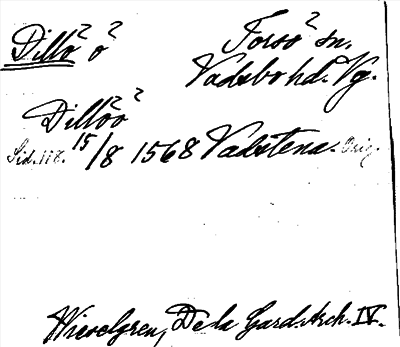 Dillö ö
Torsö sn.
Vadsbo hd. Vg.
Dillöö
Sid. 118. 15/8 1568 Vadstena. Orig.
Wieselgren, De la Gard. Arch. IV.